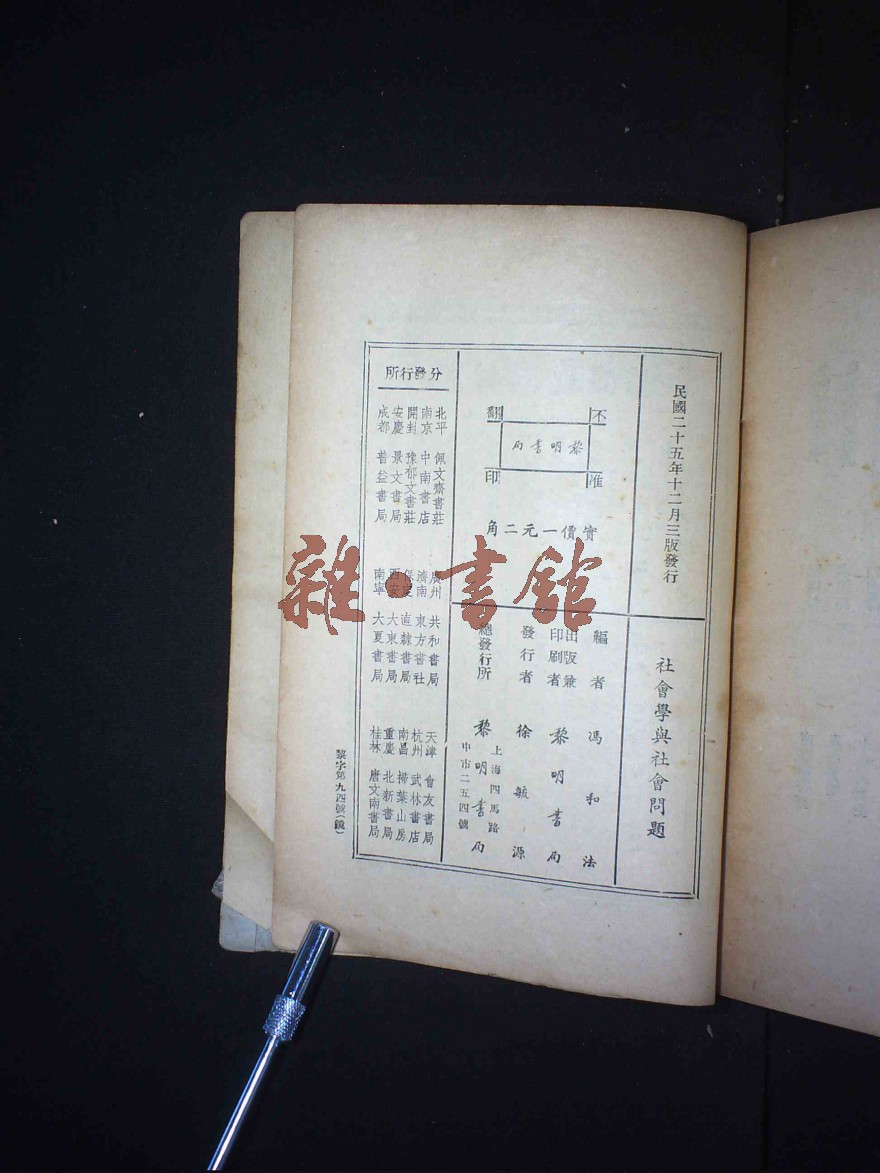 民國二十五年十二月三版發行
社會學與社會問題
不准翻印
黎明書局
實價一元二角
編者 馮和法
出版兼印刷者 黎明書局
發行者 徐毓源
總發行所 黎明書局
上海四馬路
中市二五四號
分發行所
北平 佩文齋書莊
南京 中南書店
開封 豫郁文書莊
安慶 景文書局
成都 普益書局
廣州 共和書局
濟南 東方書社
保定 直隸書局
西安 大東書局
南寧 大夏書局
天津 會友書局
杭州 武林書店
南昌 掃葉山房
重慶 北新書局
桂林 唐文南書局
黎字第九四號(鏡)
雜·書館